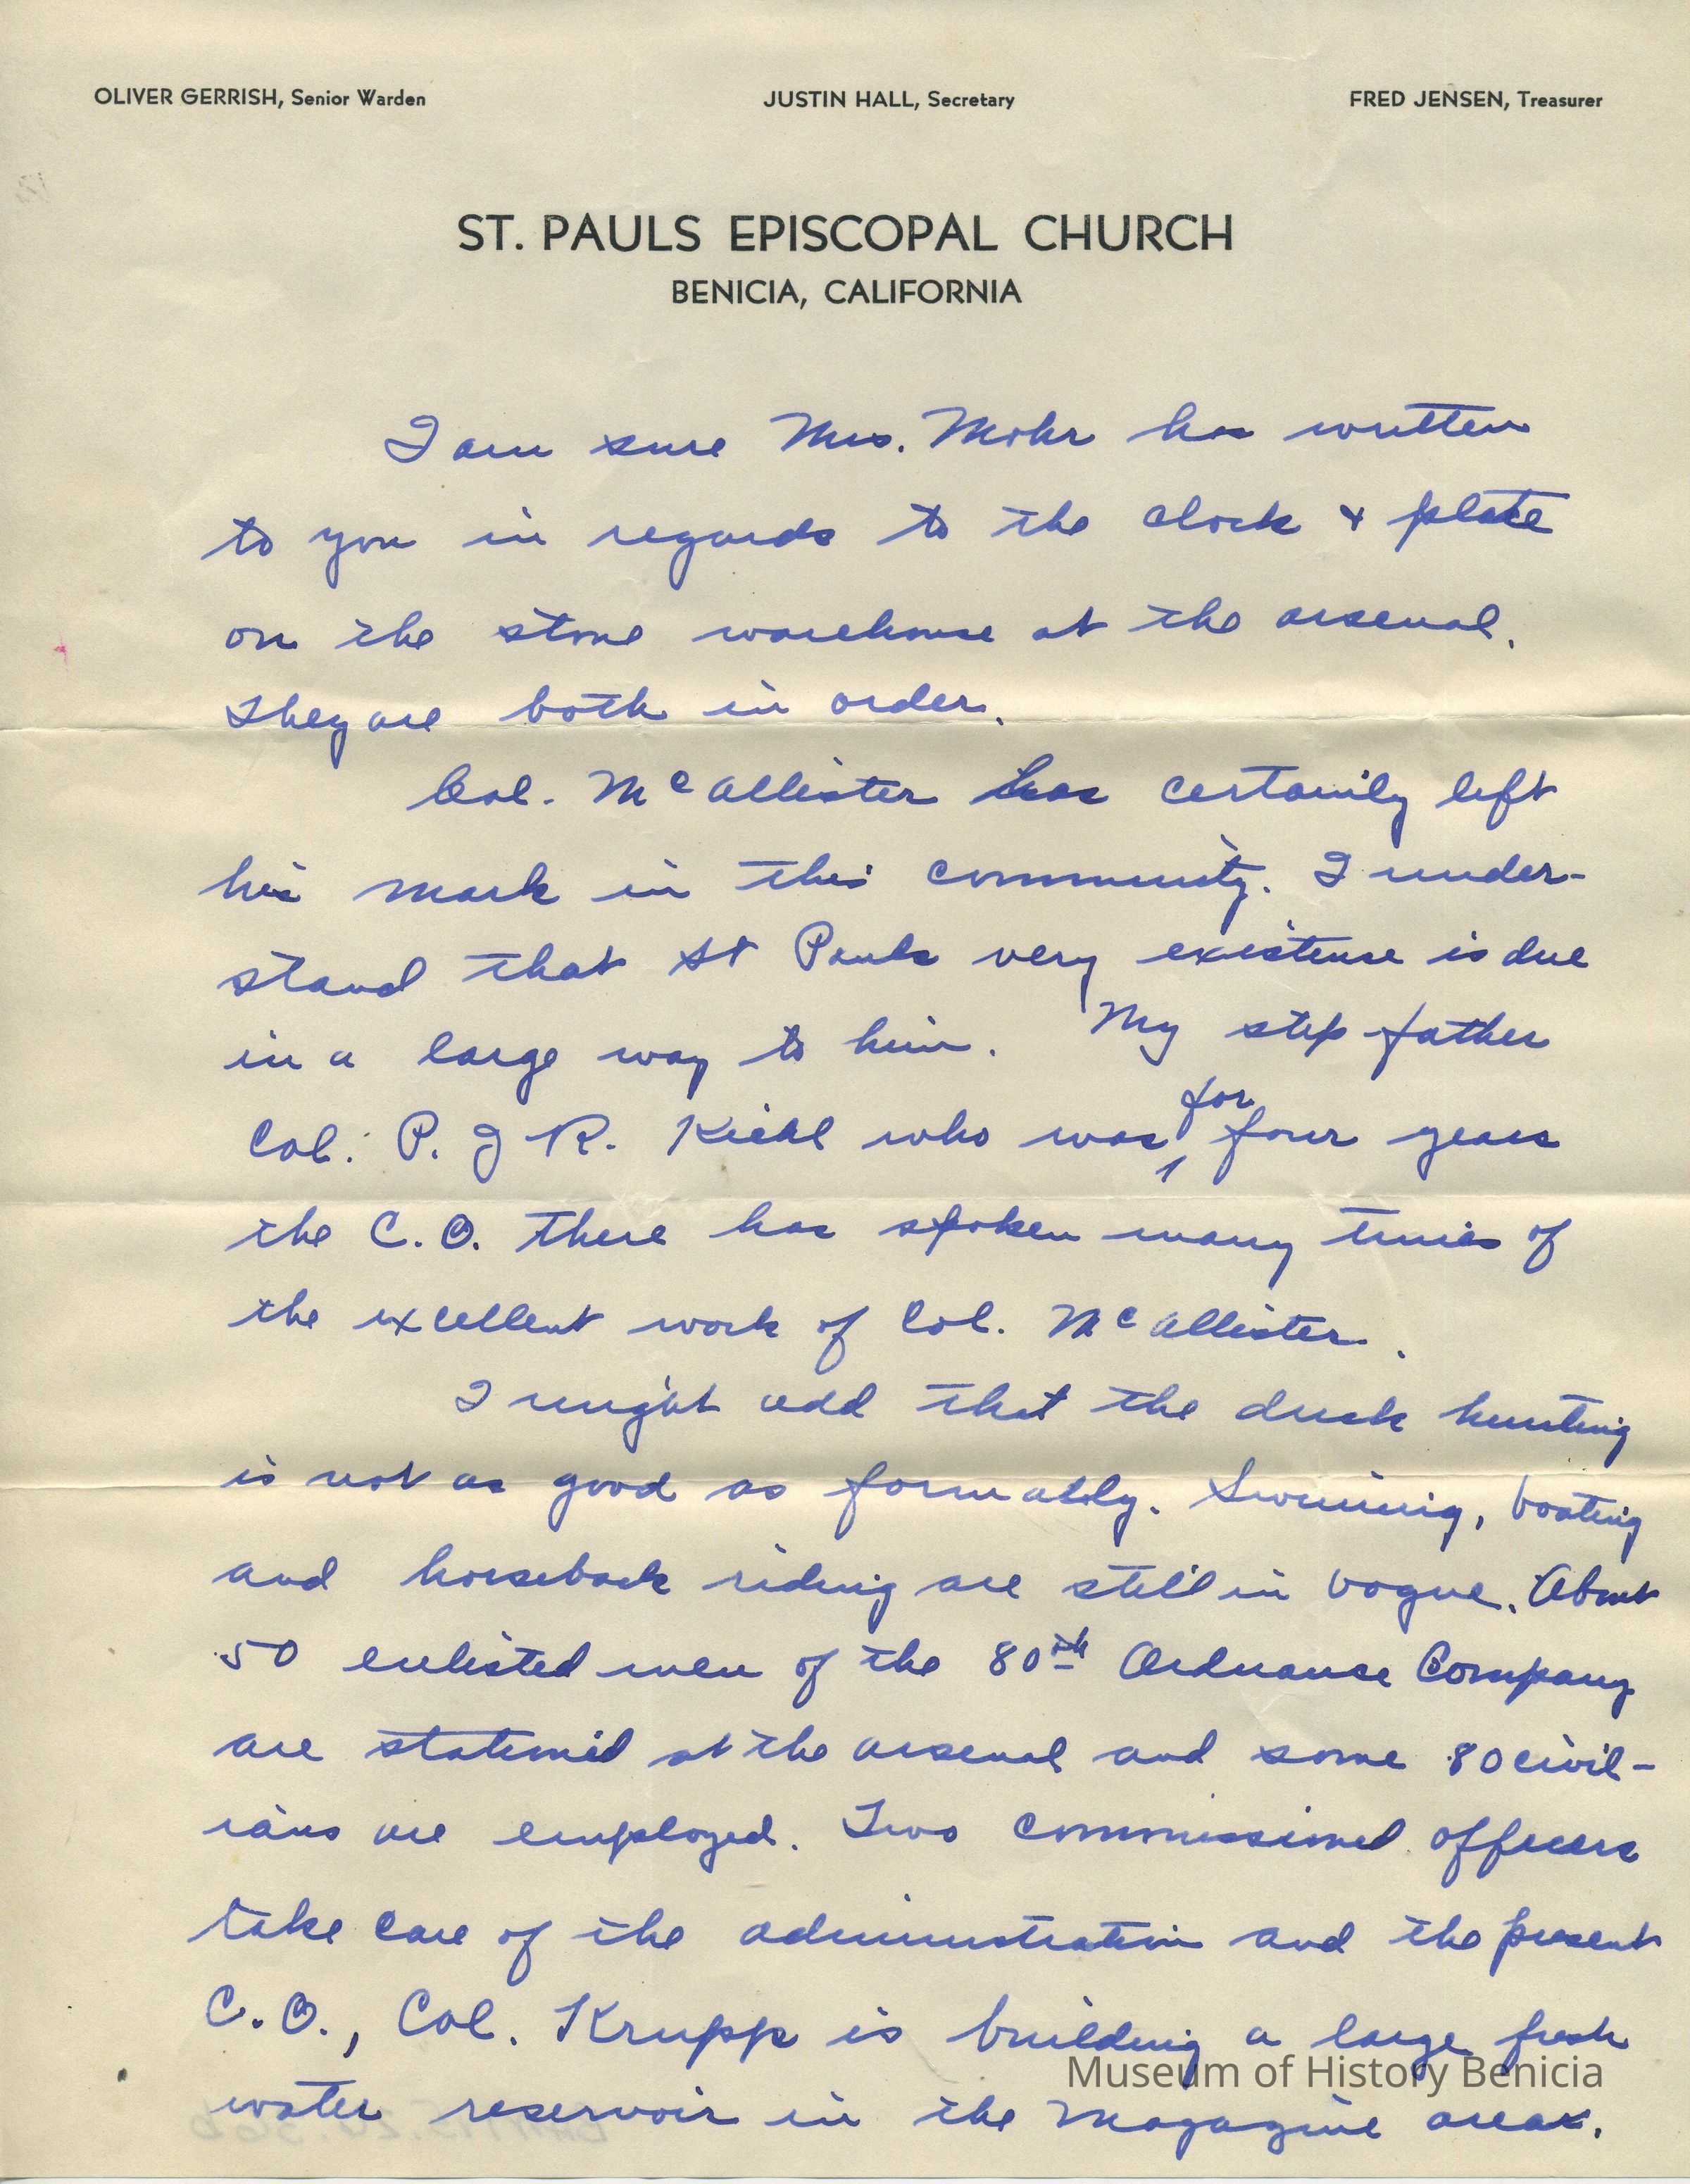 OLIVER GERRISH, Senior Warden JUSTIN HALL, Secretary FRED JENSEN, Treasurer
ST. PAULS EPISCOPAL CHURCH
BENICIA, CALIFORNIA
I am sure Mrs. Mohr has written
to you in regards to the clock & plate
on the stone warehouse at the arsenal.
They are both in order.
Col. McAllister has certainly left
his mark in this community. I under-
stand that St Pauls very existense is due
in a large way to him. My step father
Col. P. J R. Kiehl who was for four years
the C.O. there has spoken many times of
the excellent work of Col. McAllister.
I might add that the duck hunting
is not as good as formally. Swimming, boating
and horseback riding are still in vogue. About
50 enlisted men of the 80th Ordnance Company
are stationed at the arsenal and some 80 civil-
ians are employed. Two commissioned officers
take care of the administration and the present
C.O., Col. Krupp is building a large fresh
water reservoir in the Magazine area.
Museum of History Benicia